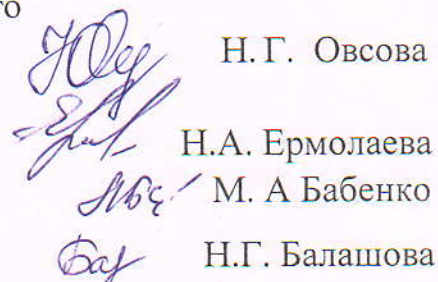 то
Н. Г. Овсова
Н.А. Ермолаева
М. А Бабенко
Н.Г. Балашова